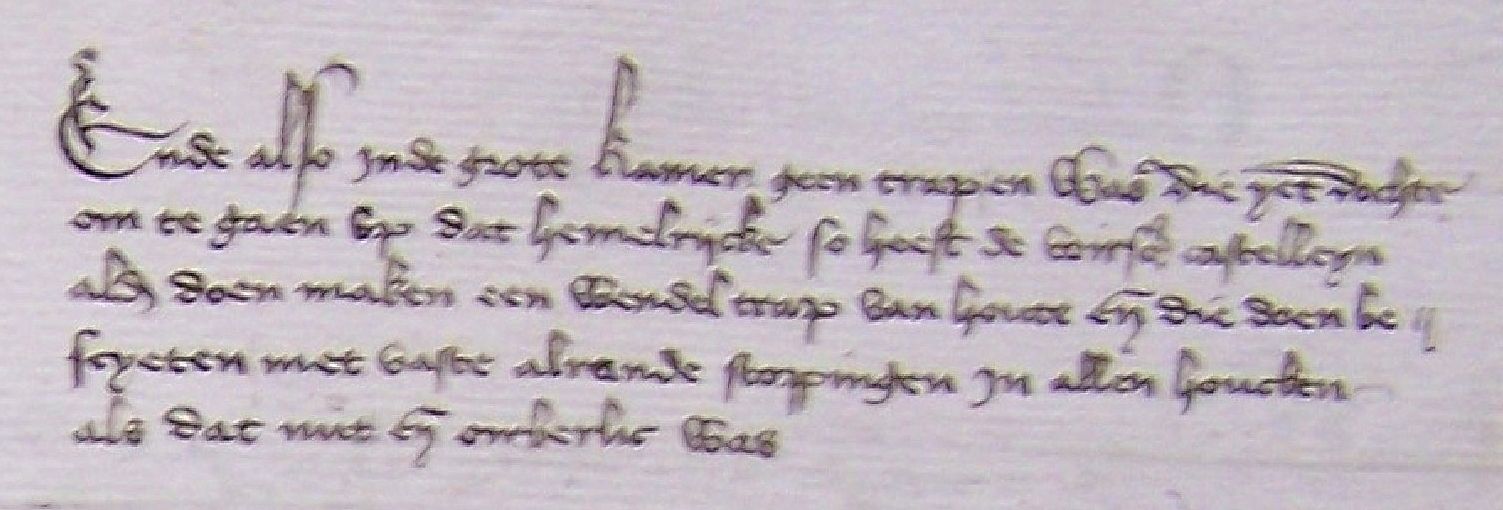 Ende also jnde grote kamer geen trapen was die yet dochte
om te gaen up dat hemelrijcke so heeft de voirs castelleyn
ald doen maken een wendel trap van houte en die doen be
scyeten met vaste alronde stoppingen jn allen houcken
als dat nut en omberlic was